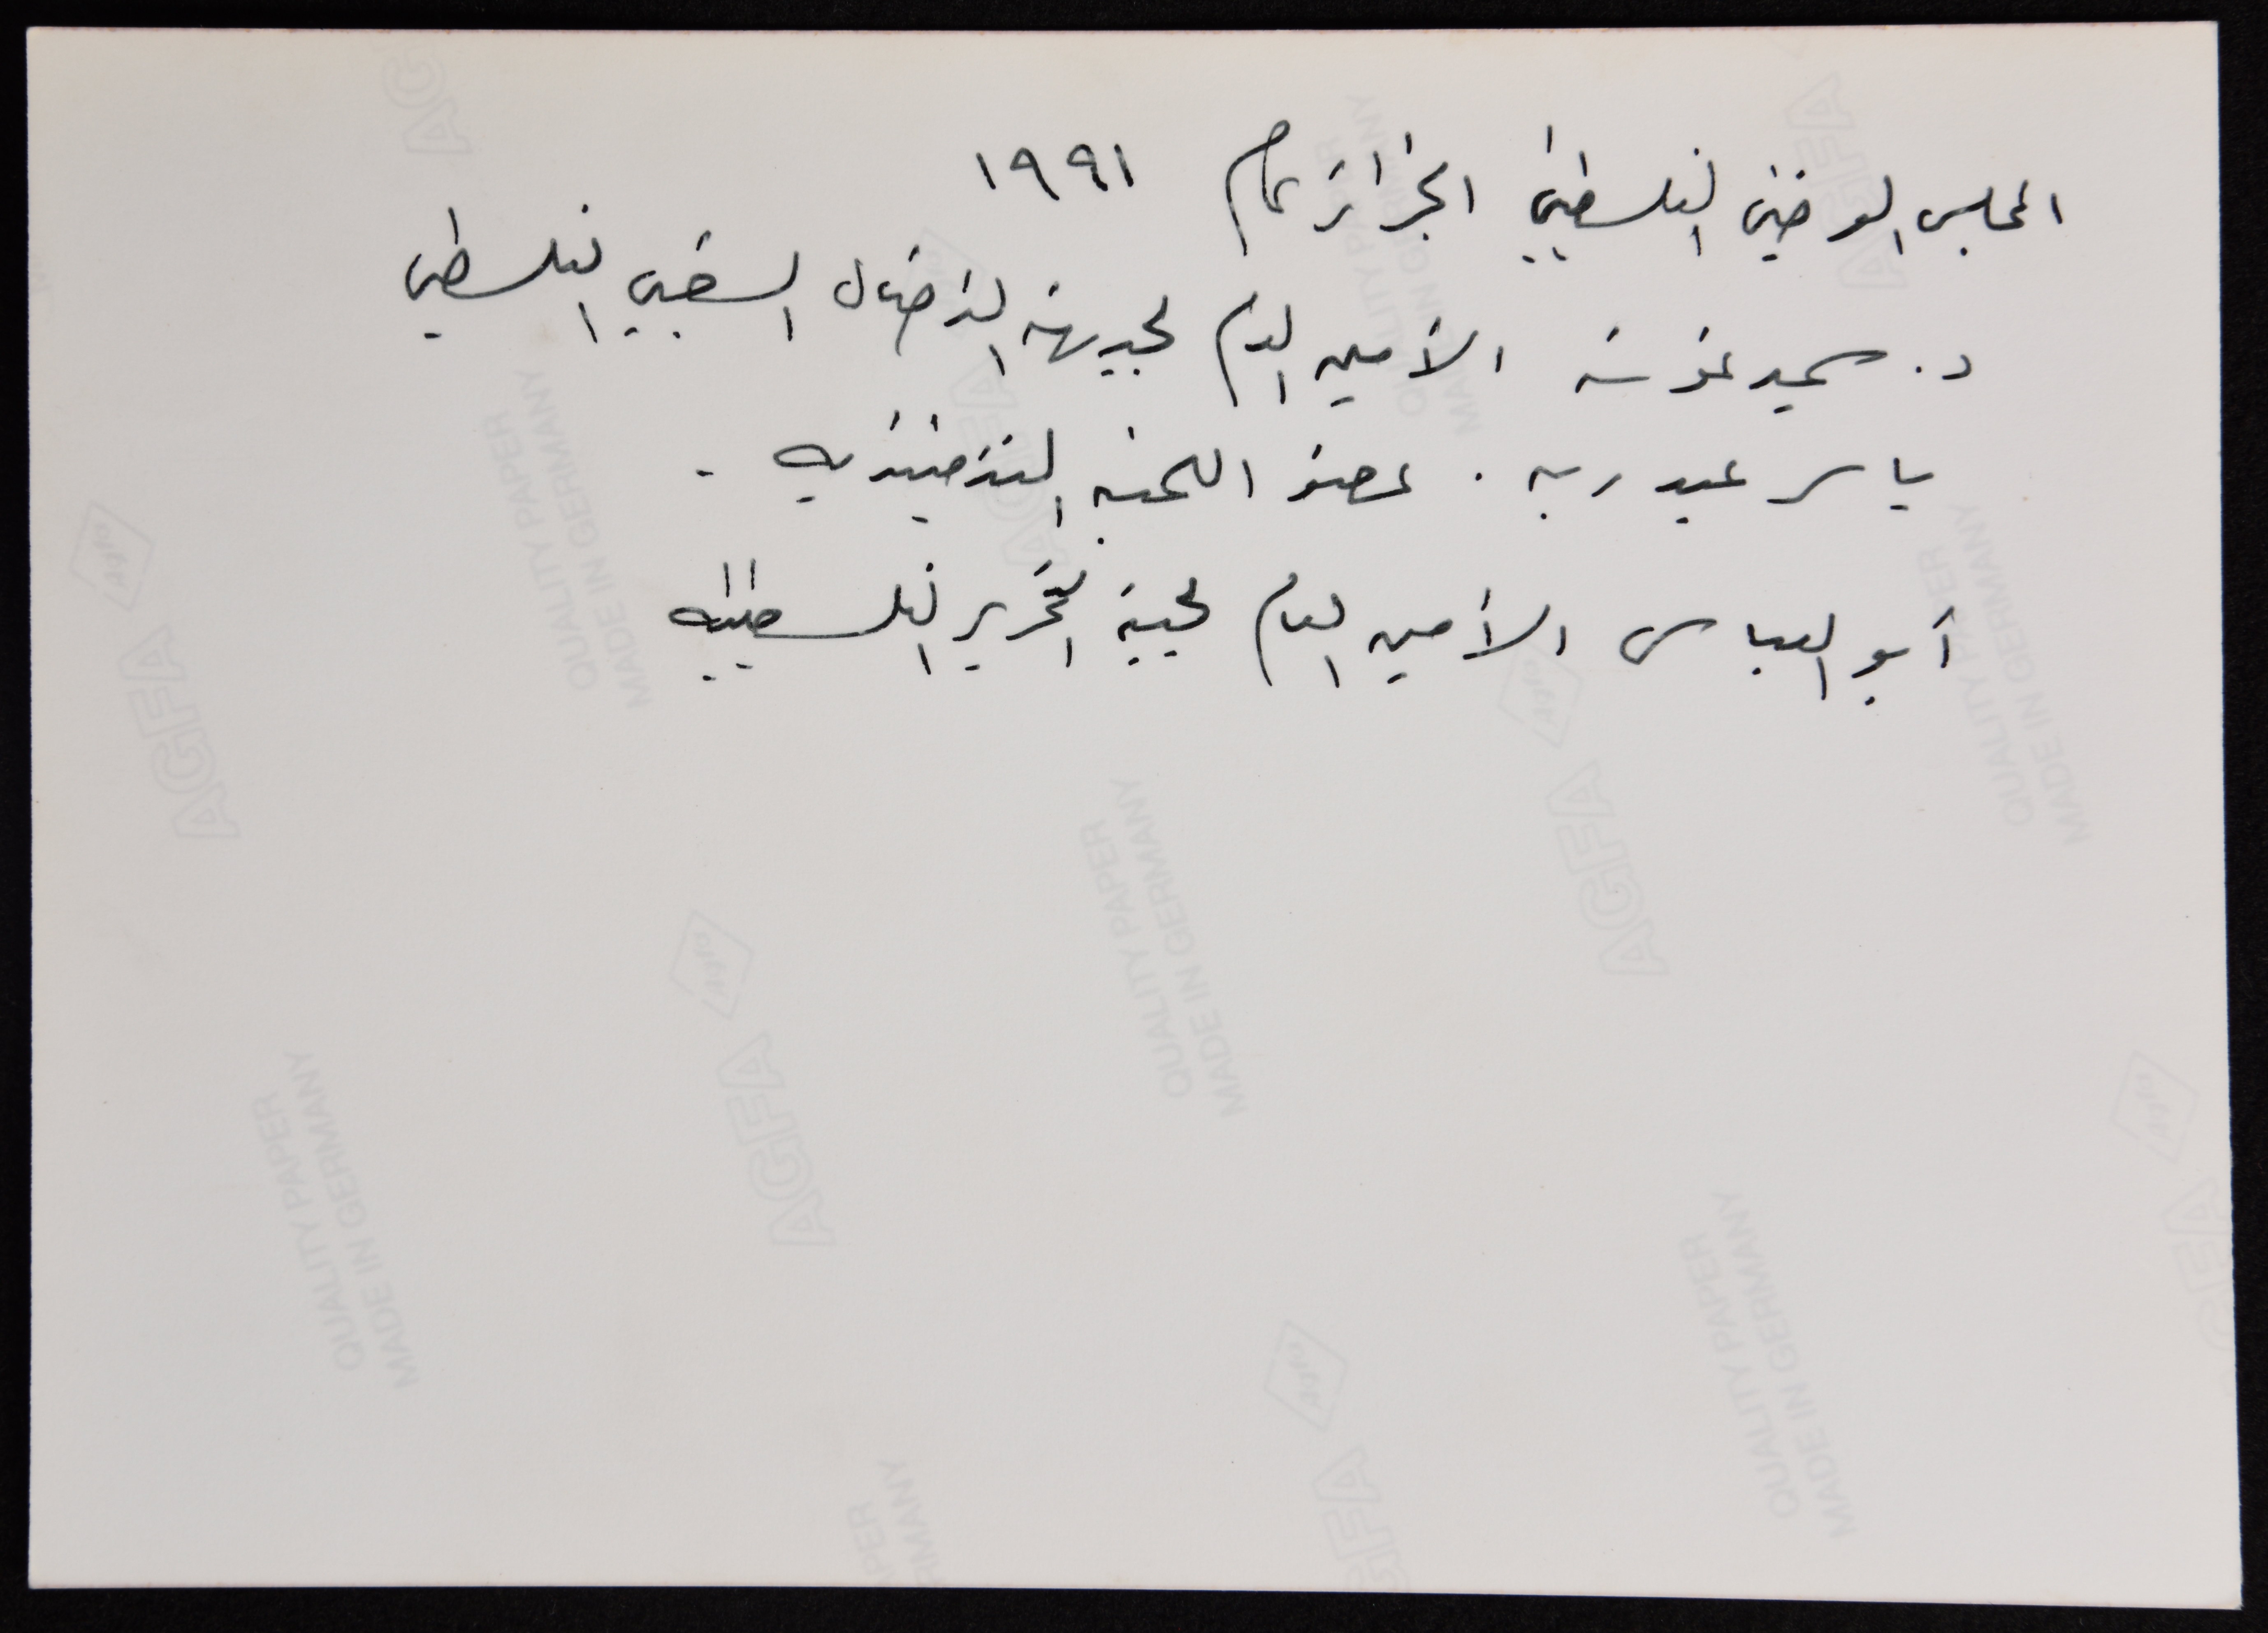 المجلس الوطني الفلسطيني الجزائر عام ١٩٩١
د. سمير غوشه الأمين العام لجبهة النضال الشعبي الفلسطيني
ياسر عبد ربه . عضو اللجنه التنفيذيه .
أبو العباس الأمين العام لجبهة التحرير الفلسطينيه
AGFA
QUALITY PAPER
MADE IN GERMANY